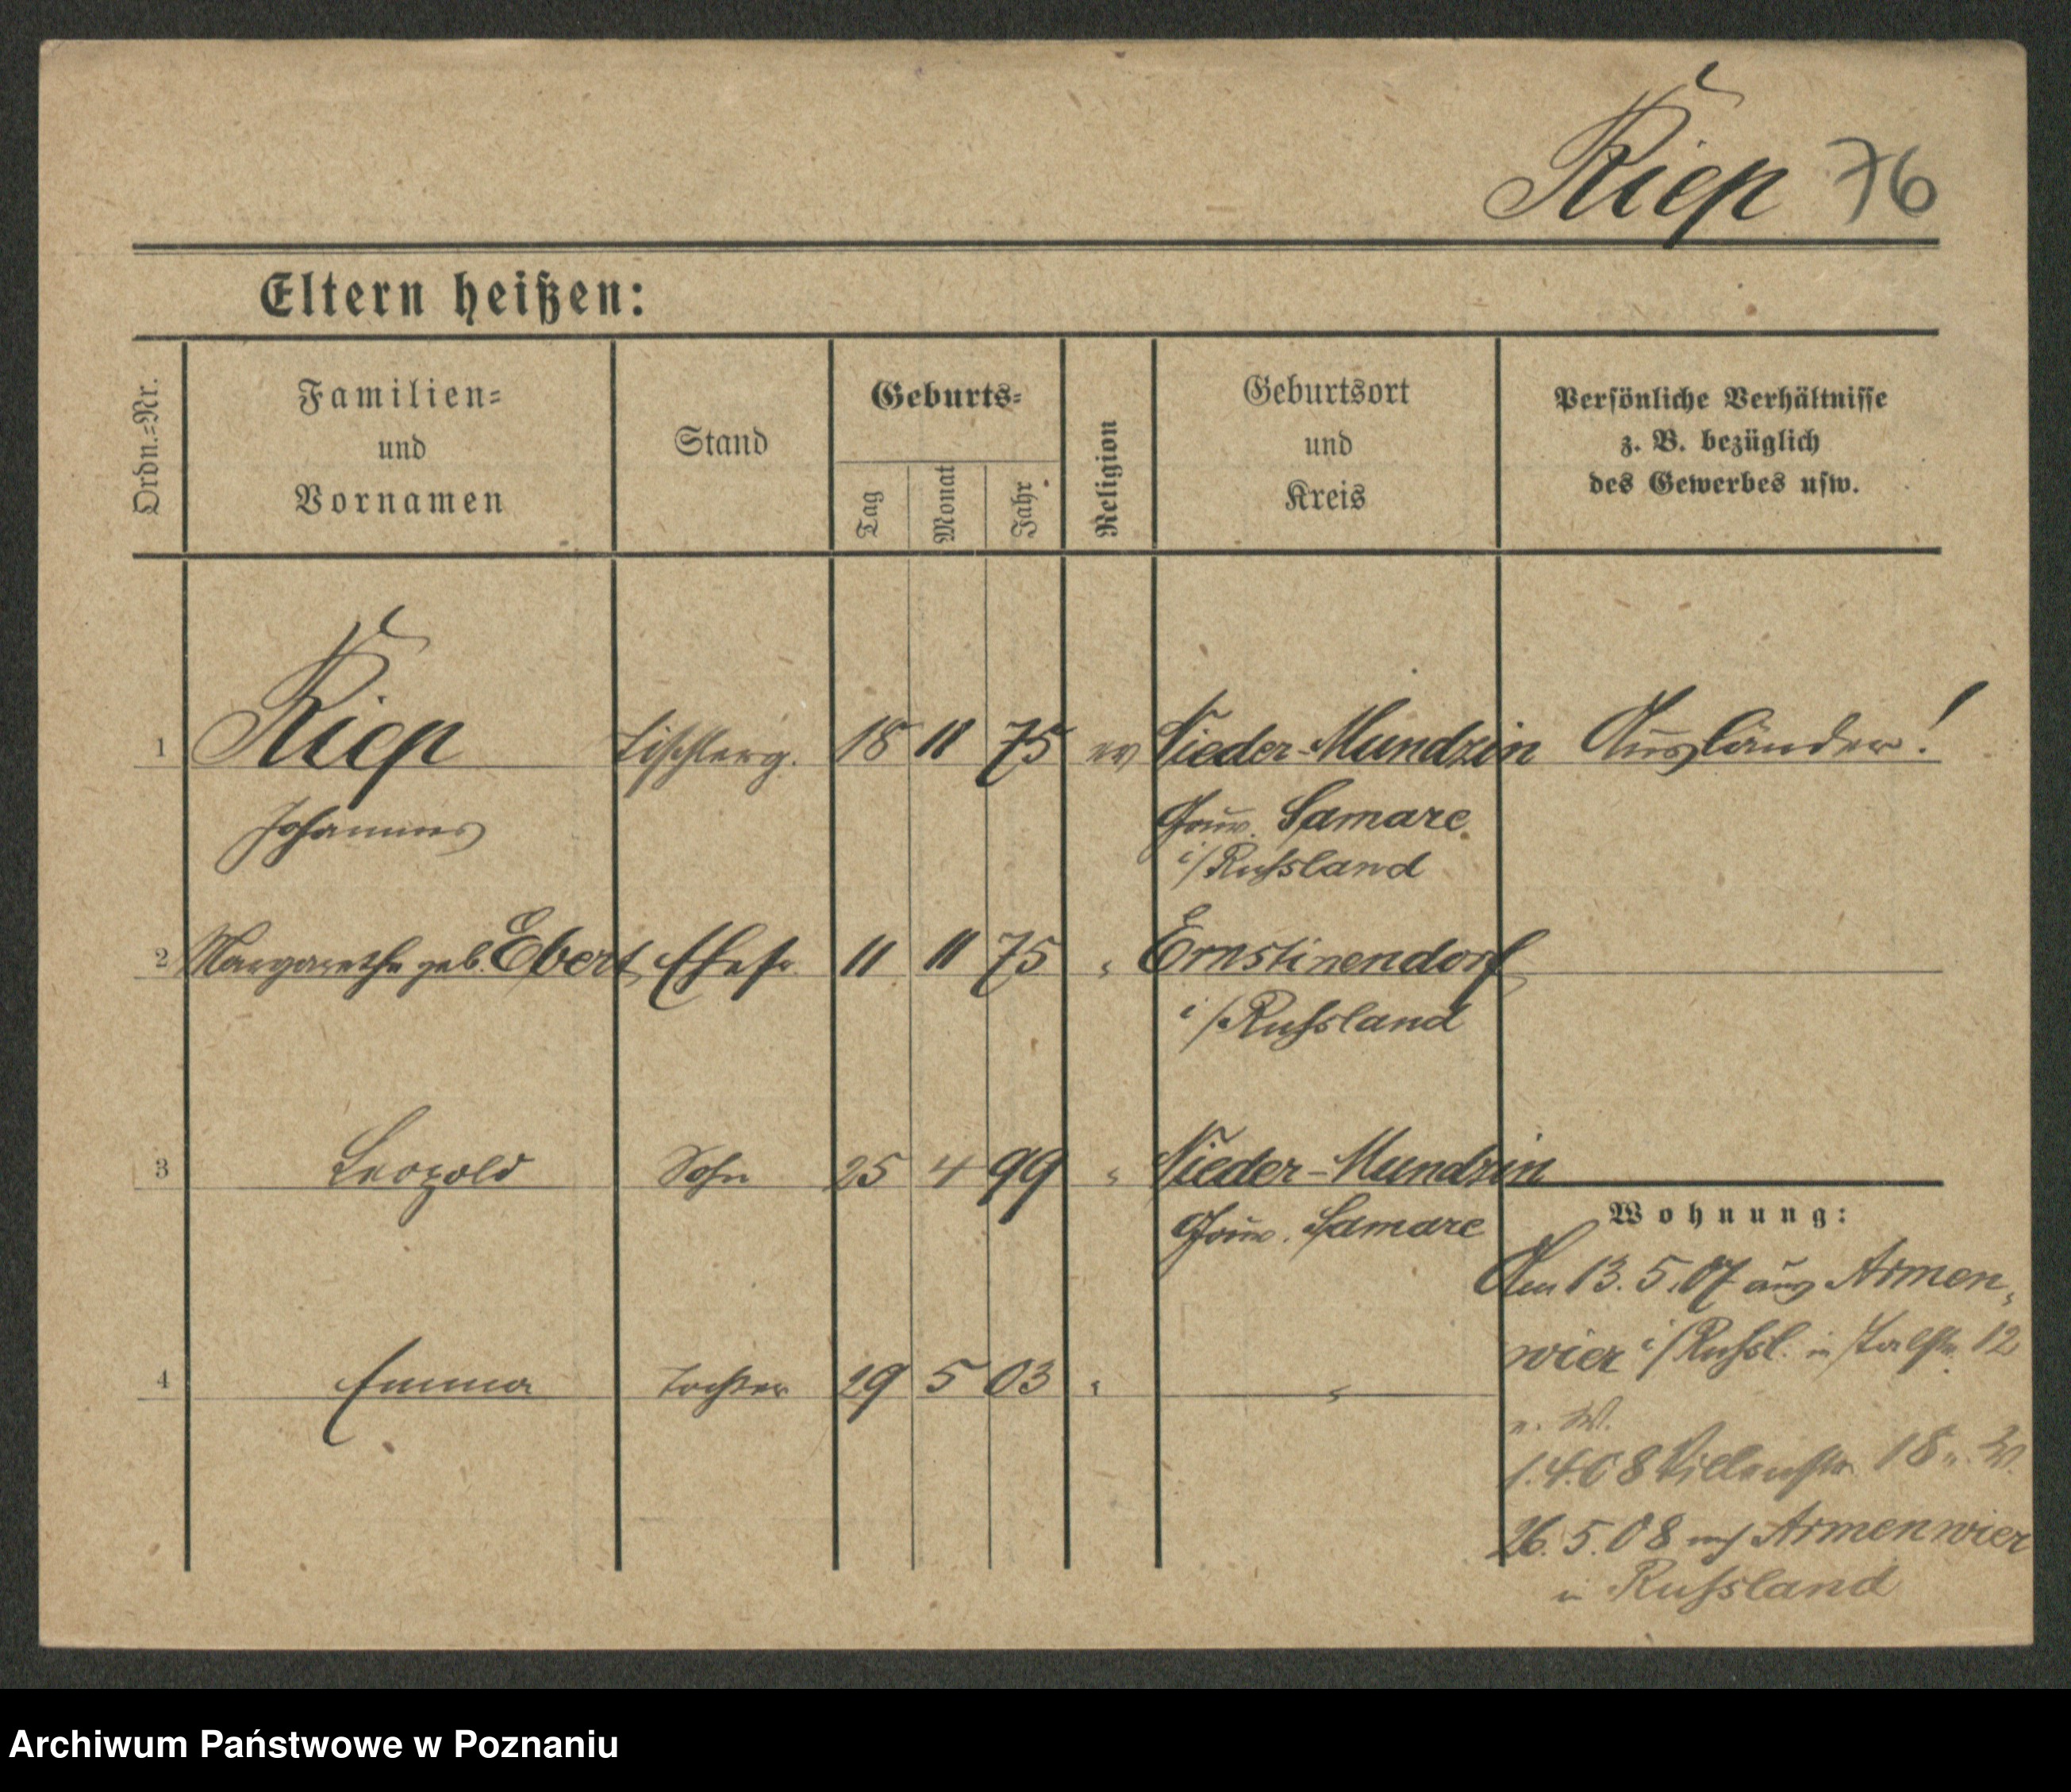 Kiep 76
Eltern heißen:
Ordn.=Nr.
Familien=
und
Vornamen
Stand
Geburts=
Tag
Monat
Jahr
Religion
Geburtsort
und
Kreis
Persönliche Verhältnisse
z. B. bezüglich
des Gewerbes usw.
1 Kiep Tischlerg. 18 11 75 ev Nieder-Mundzin Ausländer!
Johannes Gouv. Samare
i/Russland
2 Margarethe geb. Ebert Ehefr. 11 11 75 " Ernstinendorf
i/Russland
3 Leopold Sohn 25 4 99 " Nieder-Mundzin
Gouv. Samare
Wohnung:
Am 13.5.07 aus Armen-
wier i/Russl. in 12
4 Emma Tochter 29 5 03 " "
n. W.
1.4.08 Villenstr. 18 n. W.
26.5.08 nach Armenwier
in Russland
Archiwum Państwowe w Poznaniu